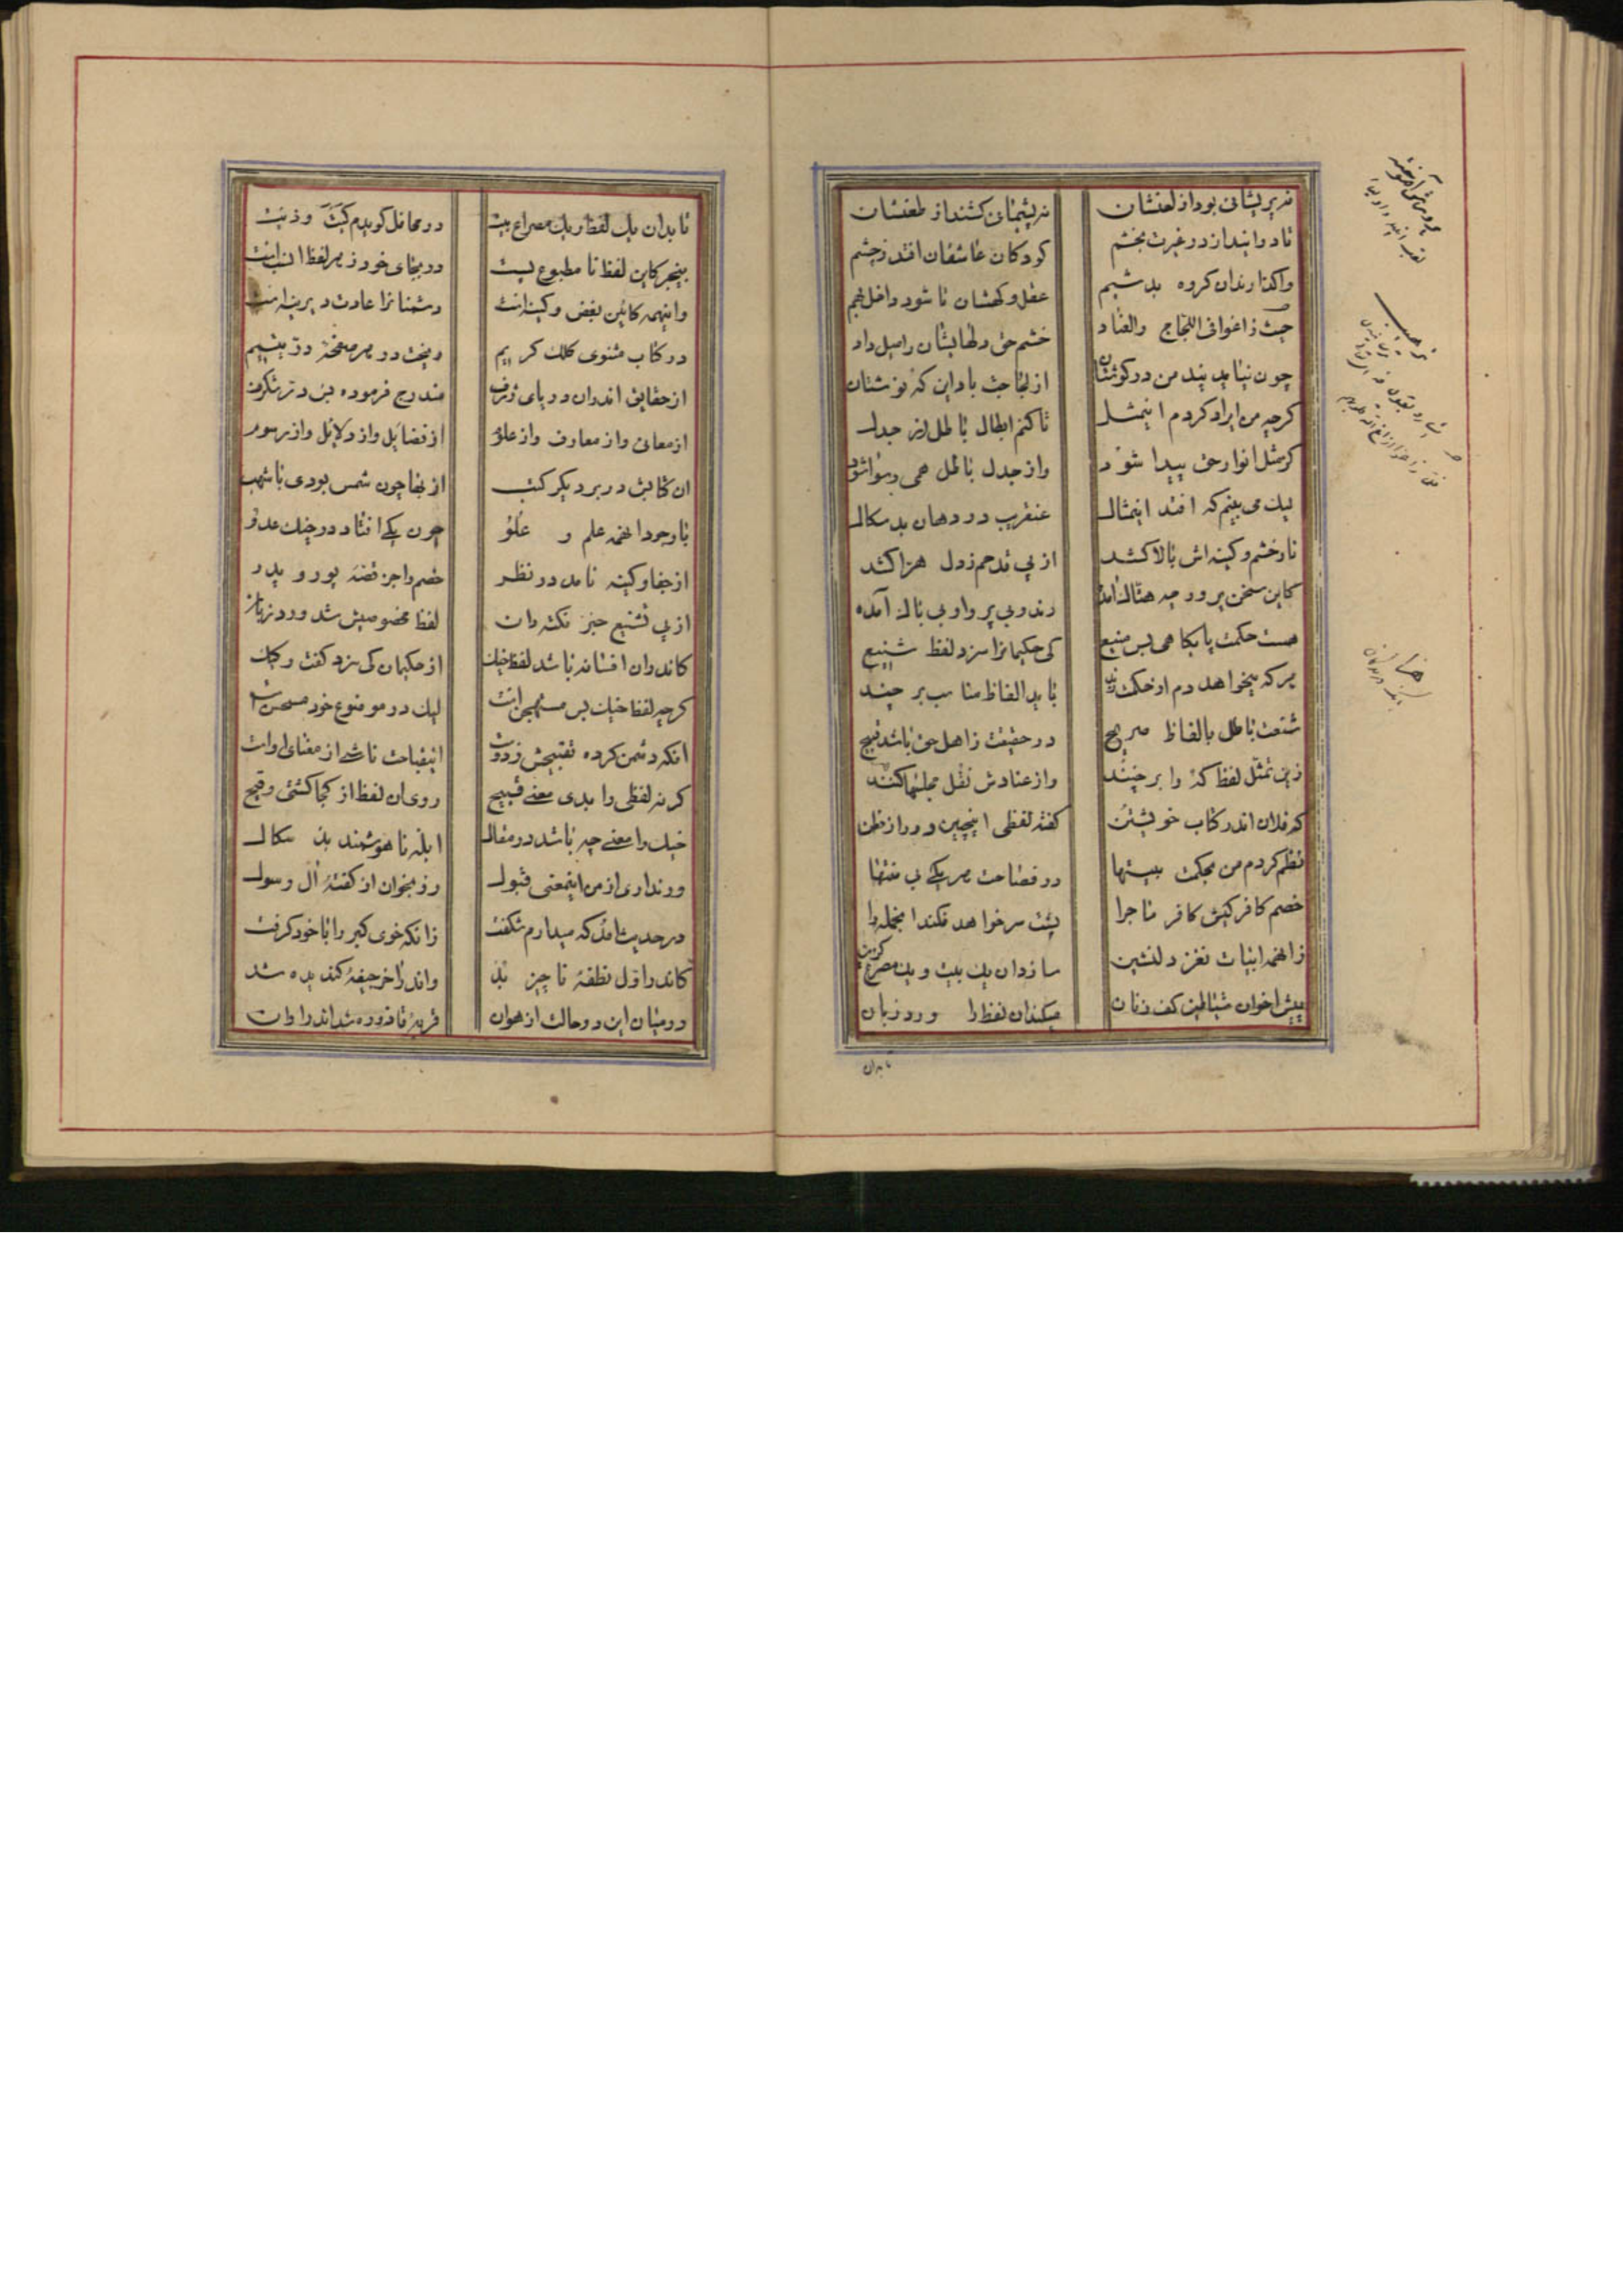 نه پریشانی بود از لعنشان
نه پشیمانی کشند از طعنشان
تا در اندازد در غیرت بخشم
کودکان عاشقان افتد ز چشم
واگذارندان کروه بد شیم
عقل و کهشان تا شود داخل بهم
حیث زاغوانی اللجاج والعناد
خشم حق دلهایشان را میل داد
چون نیاید پند من در گوششان
از لجاجت باد این که نوششان
کرچه من ایراد کردم اینمثل
تا کنم ابطال باطل از جدل
کز مثل انوار حق پیدا شود
واز جدل باطل همی رسوا شود
لیک می بینم که افتد اینمثال
عنقریب در دهان بد سکال
نار خشم و کینه اش بالا کشد
از پی قدحم ز دل هرا کشد
کاین سخن پرور چه هتاک آمده
رند و بی پروا و بی باک آمده
هست حکمت پایگاهی بس منیع
کی حکیمانرا سزد لفظ شنیع
هر که میخواهد دم از حکمت زند
باید الفاظ مناسب بر چیند
شنعت باطل بالفاظ صریح
در حقیقت ز اهل حق باشد قبیح
زین تمثل لفظ کُه را بر چنند
واز عنادش نقل مجلسها کنند
که فلان اندر کتاب خویشتن
گفته لفظی اینچنین دور از فطن
نظم کردم من بحکمت بیتها
در فصاحت هر یکی بی منتها
خصم کافر کیش کافر ماجرا
پشت سر خواهد فکند انجمله را
زانهمه ابیات نغز دلنشین
سازد ان یک بیت و یک مصرع گزین
پیش اخوان شیاطین کف زنان
میکند ان لفظ را ورد زبان
تا بدان
تا بدان یک لفظ و یک مصراع بیت
در محافل گویدم کیت و ذیت
بیخبر کاین لفظ نا مطبوع نیست
در بجای خود ز هر لفظ انسب است
وانهمه کائین بغض و کین است
دشمنانرا عادت دیرینه است
در کتاب مثنوی کلک کریم
ریخت در هر صفحهٔ در یتیم
از حقایق اندران دریای ژرف
مندرج فرموده بس در شگرف
از معانی واز معارف واز علوم
از فضایل واز دلایل واز رسوم
ان کتابش در بر دیگر کتب
از بها چون شمس بودی با شهب
با وجود انهمه علم و علو
چون یکی افتاد در چنک عدو
از جفا و کینه نامد در نظر
خصم را جز قصهٔ پور و پدر
از پی تشنیع حبر نکته دان
لفظ مخصوصیش شد ورد زبان
کاندران افسانه باشد لفظ خیک
از حکیمان کی سزد گفت رکیک
گرچه لفظ خیک بس مستهجن است
لیک در موضوع خود مستحسن است
انکه دشمن کرده تقبیحش ز دوست
انقباحت ناشی از معنای اوست
گر نه لفظی را بدی معنی قبیح
روی ان لفظ از کجا گشتی وقیح
خیک را معنی چه باشد در مقال
ابله ناهوشمند بد سکال
ور نداری از من اینمعنی قبول
رو بخوان از گفتهٔ آل رسول
در حدیث امد که میدارم شگفت
زانکه خوی کبر را با خود گرفت
کاندر اول نطفهٔ ناچیز بُد
واندر اخر جیفهٔ گندیده شد
در میان این دو حالت از هوان